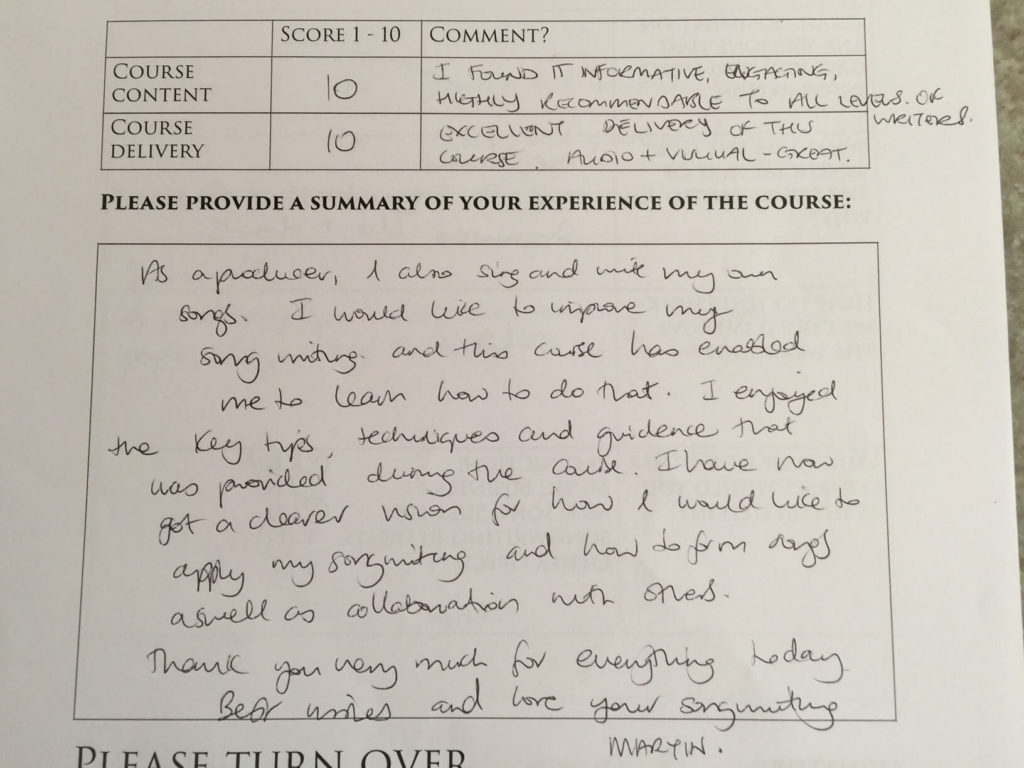 SCORE 1 - 10 COMMENT?
COURSE CONTENT 10 I FOUND IT INFORMATIVE, ENGAGING,
HIGHLY RECOMMENDABLE TO ALL LEVELS OF WRITERS.
COURSE DELIVERY 10 EXCELLENT DELIVERY OF THIS
COURSE. AUDIO + VISUAL - GREAT.
PLEASE PROVIDE A SUMMARY OF YOUR EXPERIENCE OF THE COURSE:
As a producer, I also sing and write my own
songs. I would like to improve my
song writing. and this course has enabled
me to learn how to do that. I enjoyed
the key tips, techniques and guidence that
was provided during the course. I have now
got a clearer vision for how I would like to
apply my songwriting and how to form songs
aswell as collaboration with others.
Thank you very much for everything today
Best wishes and love your songwriting
MARTIN.
PLEASE TURN OVER